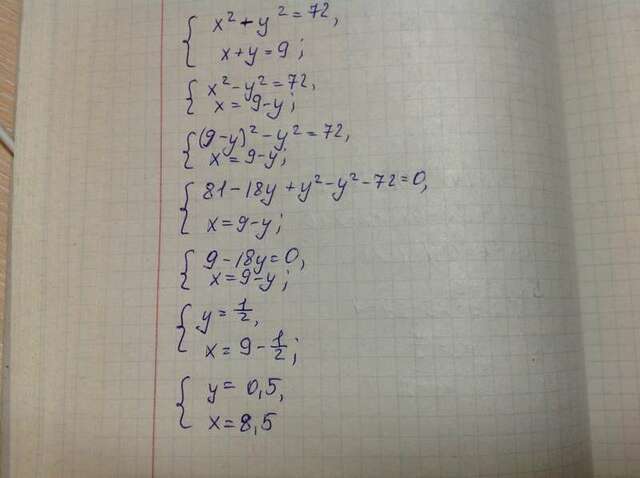 x² + y² = 72,
x + y = 9;
x² - y² = 72,
x = 9 - y;
(9 - y)² - y² = 72,
x = 9 - y;
81 - 18y + y² - y² - 72 = 0,
x = 9 - y;
9 - 18y = 0,
x = 9 - y;
y = 1/2,
x = 9 - 1/2;
y = 0,5,
x = 8,5